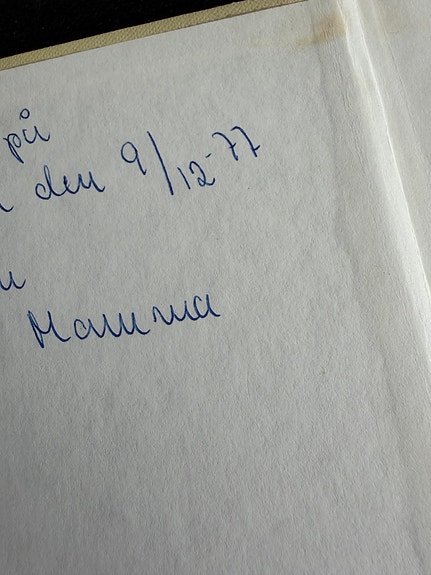 på
den 9/12-77
Mamma